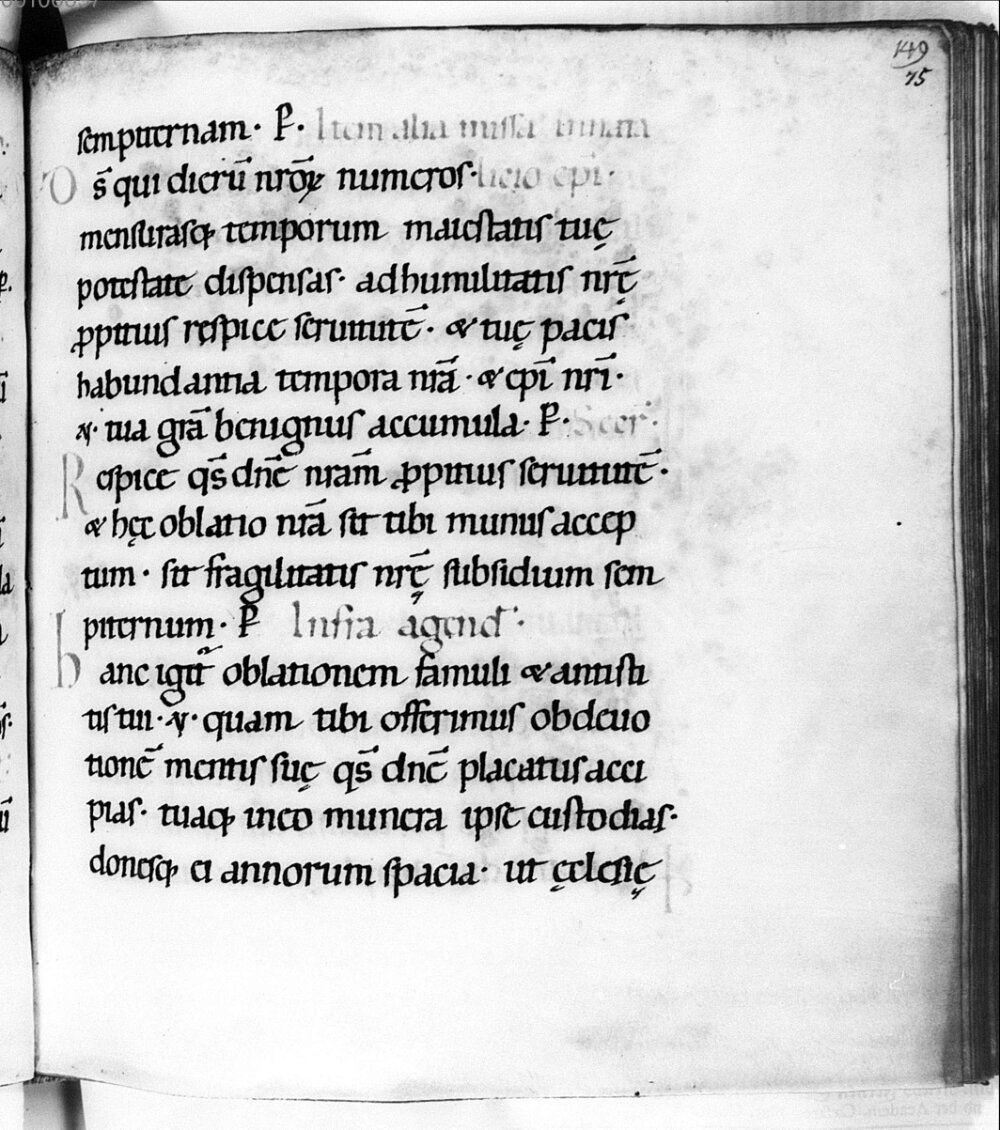 149
75
sempiternam· P̄· Item alia missa in nata
O s̄ qui dierū nr̄oꝝ numeros· licio ep̄i·
mensurasq; temporum maiestatis tuę
potestate dispensas· adhumilitatis nr̄ę
ꝓpitius respice seruitutē· & tuę pacis
habundantia tempora nr̄a· & ep̄i nr̄i·
N̄· tua gr̄a benignus accumula· P̄· Secr̄·
R espice qs̄ dn̄e nr̄am ꝓpitius seruitutē·
& hęc oblatio nr̄a sit tibi munus accep
tum· sit fragilitatis nr̄ę subsidium sem
piternum· P̄ Infra agend̄·
h anc igit̄ oblationem famuli & antisti
tis tui· N̄· quam tibi offerimus obdeuo
tionē mentis suę qs̄ dn̄e placatus acci
pias· tuaq; in eo munera ipse custodias·
donesq; ei annorum spacia· ut ęclesię